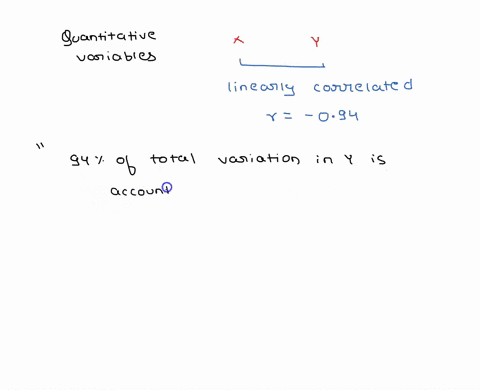 Quantitative X Y
variables
linearly correlated
r = -0.94
"
94% of total variation in Y is
account